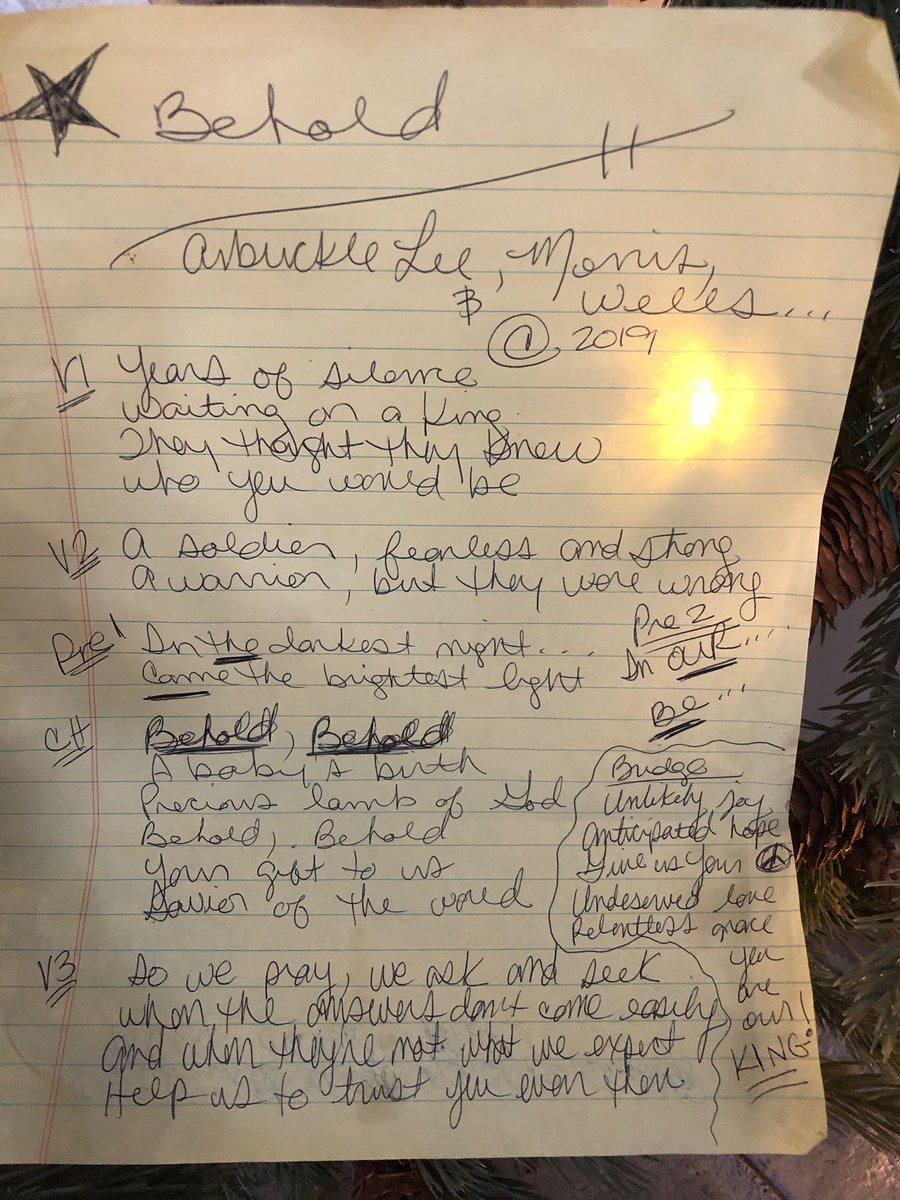 Behold
Arbuckle Lee, Morris,
& Welles...
© 2019
V1 Years of silence
waiting on a King
They thought they knew
who you would be
V2 A soldier, fearless and strong
A warrior, but they were wrong
Pre 1 In the darkest night....
Came the brightest light
Pre 2
In our....
Be...
CH Behold, Behold
A baby's birth
Precious lamb of God
Behold, Behold
Your gift to us
Savior of the world
Bridge
Unlikely joy
Anticipated hope
Give us your ☮
Undeserved love
Relentless grace
you
are
our!
KING!
V3 So we pray, we ask and seek
when the answers don't come easily
And when they're not what we expect
Help us to trust you even then